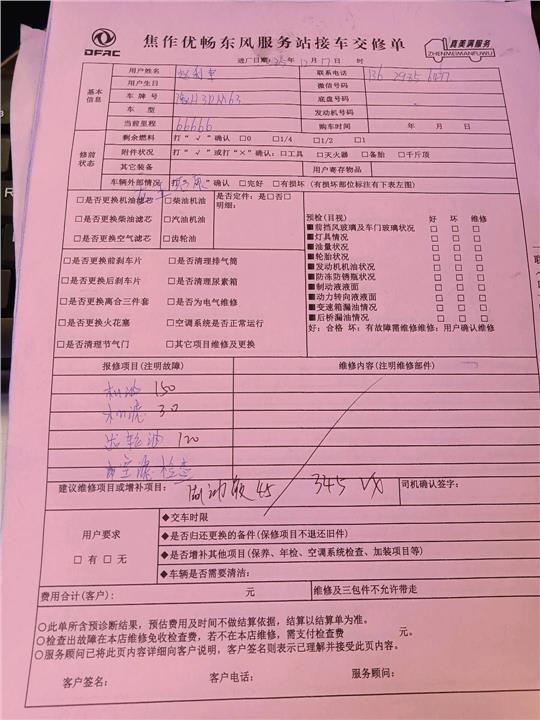 DFAC
焦作优畅东风服务站接车交修单
真美满服务
ZHENMEIMANFUWU
进厂日期: 25年 12月17日 时
基本信息
用户姓名
联系电话
用户生日
微信号码
车牌号
底盘号码
车型
发动机号码
当前里程 66666 购车时间 年 月 日
修前状态
剩余燃料 打“√”确认 □0 □1/4 □1/2 □1
附件状况 打“√”或打“×”确认:□工具 □灭火器 □备胎 □千斤顶
其它装备 用户寄存物品
车辆外部情况 确认 □完好 □有损坏 (有损坏部位标注有下表左图)
□是否更换机油滤芯 □柴油机油
□是否更换柴油滤芯 □汽油机油
□是否更换空气滤芯 □齿轮油
是否定件:是□否□
明细:
□是否更换前刹车片 □是否清理排气筒
□是否更换后刹车片 □是否清理尿素箱
□是否更换离合三件套 □是否为电气维修
□是否更换火花塞 □空调系统是否正常运行
□是否清理节气门 □其它项目维修及更换
预检(目视) 好 坏 维修
■前挡风玻璃及车门玻璃状况 □ □ □
■灯具情况 □ □ □
■油量状况 □ □ □
■轮胎状况 □ □ □
■发动机机油状况 □ □ □
■防冻防锈瓶状况 □ □ □
■制动液液面 □ □ □
■动力转向液液面 □ □ □
■变速箱漏油情况 □ □ □
■后桥漏油情况 □ □ □
好:合格 坏:有故障需维修维修:用户确认维修
报修项目(注明故障) 维修内容(注明维修部件)
机油 150
机滤 30
齿轮油 120
空滤 检查
建议维修项目或增补项目: 制动液 45 345 司机确认签字:
用户要求
□有 □无
◆交车时限
◆是否归还更换的备件(保修项目不退还旧件)
◆是否增补其他项目(保养、年检、空调系统检查、加装项目等)
◆车辆是否需要清洁:
费用合计(客户): 元 维修及三包件不允许带走
○此单所含预诊断结果,预估费用及时间不做结算依据,结算以结算单为准。
○检查出故障在本店维修免收检查费,若不在本店维修,需支付检查费 元。
○服务顾问已将此页内容详细向客户说明,客户签名则表示已理解并接受此页内容。
客户签名: 客户电话: 服务顾问: